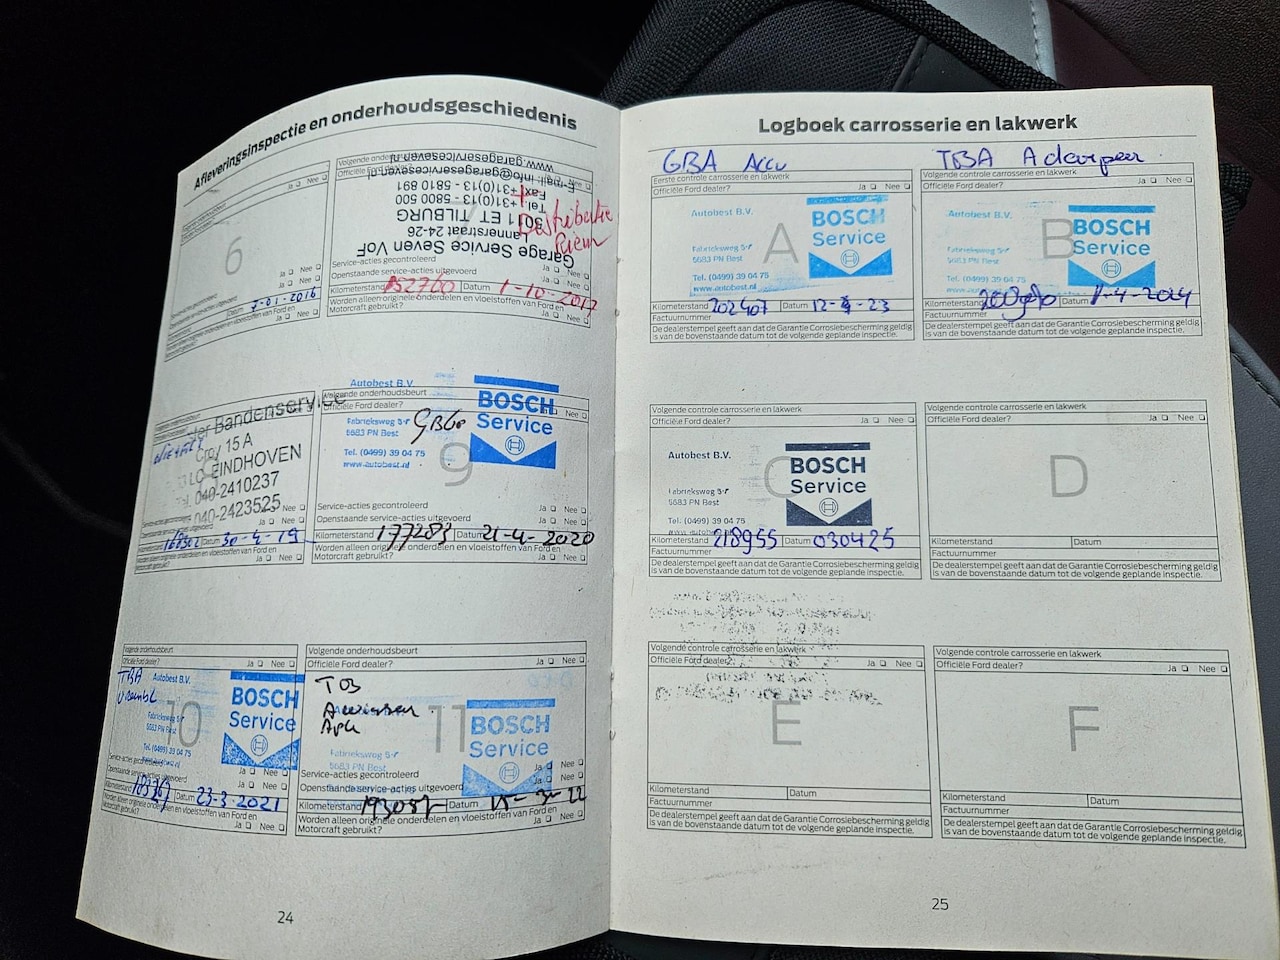 Afleveringsinspectie en onderhoudsgeschiedenis
Ja Nee
6
Ja Nee
Ja Nee
Datum 7-01-2016
Ja Nee
Volgende
www.garageserviceseven.nl
E-mail: info@garageserviceseven.nl
Fax +31(0)13 - 5810 891
Tel. +31(0)13 - 5800 500
5011 ET TILBURG
Lannerstraat 24-26
Garage Service Seven VoF
Distributie
Riem
Service-acties gecontroleerd
Openstaande service-acties uitgevoerd
Ja Nee
Kilometerstand 152760 Datum 1-10-2017
Worden alleen originele onderdelen en vloeistoffen van Ford en
Motorcraft gebruikt?
Ja Nee
Bandenservice
Croy 15 A
EINDHOVEN
Tel. 040-2410237
040-2423525
Nee
Ja Nee
Datum 30-4-19
Worden alleen originele onderdelen en vloeistoffen van Ford en
Motorcraft gebruikt?
Ja Nee
Volgende onderhoudsbeurt
Officiële Ford dealer?
Ja Nee
Autobest B.V.
Fabrieksweg 5-7
5683 PN Best
Tel. (0499) 39 04 75
www-autobest.nl
BOSCH
Service
9
Service-acties gecontroleerd
Openstaande service-acties uitgevoerd
Ja Nee
Kilometerstand 177283 Datum 21-4-2020
Worden alleen originele onderdelen en vloeistoffen van Ford en
Motorcraft gebruikt?
Ja Nee
Volgende onderhoudsbeurt
Officiële Ford dealer?
Ja Nee
TBA
Autobest B.V.
Fabrieksweg 5-7
5683 PN Best
Tel. (0499) 39 04 75
BOSCH
Service
10
Openstaande service-acties uitgevoerd
Ja Nee
Ja Nee
Kilometerstand Datum 23-3-2021
Worden alleen originele onderdelen en vloeistoffen van Ford en
Motorcraft gebruikt?
Ja Nee
Volgende onderhoudsbeurt
Officiële Ford dealer?
Ja Nee
Fabrieksweg 5-7
BOSCH
Service
11
Service-acties gecontroleerd
Openstaande service-acties uitgevoerd
Ja Nee
Ja Nee
Kilometerstand 193057 Datum 15-3-22
Worden alleen originele onderdelen en vloeistoffen van Ford en
Motorcraft gebruikt?
Ja Nee
24
Logboek carrosserie en lakwerk
GBA Accu
Eerste controle carrosserie en lakwerk
Officiële Ford dealer?
Ja Nee
Autobest B.V.
Fabrieksweg 5-7
5683 PN Best
Tel. (0499) 39 04 75
www.autobest.nl
BOSCH
Service
A
Kilometerstand 202407 Datum 12-4-23
Factuurnummer
De dealerstempel geeft aan dat de Garantie Corrosiebescherming geldig
is van de bovenstaande datum tot de volgende geplande inspectie.
TBA
Volgende controle carrosserie en lakwerk
Officiële Ford dealer?
Ja Nee
Autobest B.V.
Fabrieksweg 5-7
5683 PN Best
Tel. (0499) 39 04 75
BOSCH
Service
B
Kilometerstand Datum 11-4-2024
Factuurnummer
De dealerstempel geeft aan dat de Garantie Corrosiebescherming geldig
is van de bovenstaande datum tot de volgende geplande inspectie.
Volgende controle carrosserie en lakwerk
Officiële Ford dealer?
Ja Nee
Autobest B.V.
Fabrieksweg 5-7
5683 PN Best
Tel. (0499) 39 04 75
BOSCH
Service
C
Kilometerstand 218955 Datum 030425
Factuurnummer
De dealerstempel geeft aan dat de Garantie Corrosiebescherming geldig
is van de bovenstaande datum tot de volgende geplande inspectie.
Volgende controle carrosserie en lakwerk
Officiële Ford dealer?
Ja Nee
D
Kilometerstand Datum
Factuurnummer
De dealerstempel geeft aan dat de Garantie Corrosiebescherming geldig
is van de bovenstaande datum tot de volgende geplande inspectie.
Volgende controle carrosserie en lakwerk
Officiële Ford dealer?
Ja Nee
E
Kilometerstand Datum
Factuurnummer
De dealerstempel geeft aan dat de Garantie Corrosiebescherming geldig
is van de bovenstaande datum tot de volgende geplande inspectie.
Volgende controle carrosserie en lakwerk
Officiële Ford dealer?
Ja Nee
F
Kilometerstand Datum
Factuurnummer
De dealerstempel geeft aan dat de Garantie Corrosiebescherming geldig
is van de bovenstaande datum tot de volgende geplande inspectie.
25